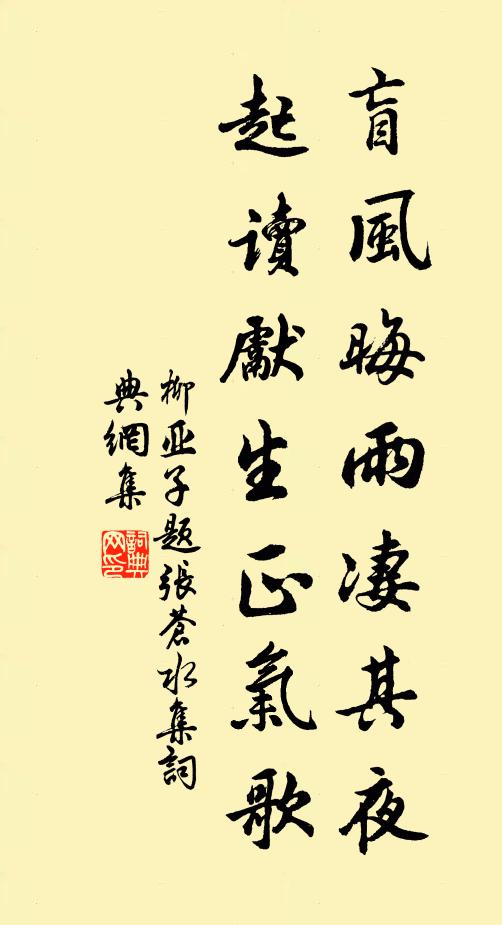 盲風晦雨凄其夜
起讀獻生正氣歌
柳亚子题張蒼水集詞
典網集
詞典网印